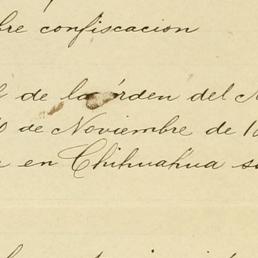 bre confiscacion
de la órden del
de Noviembre de 1
en Chihuahua